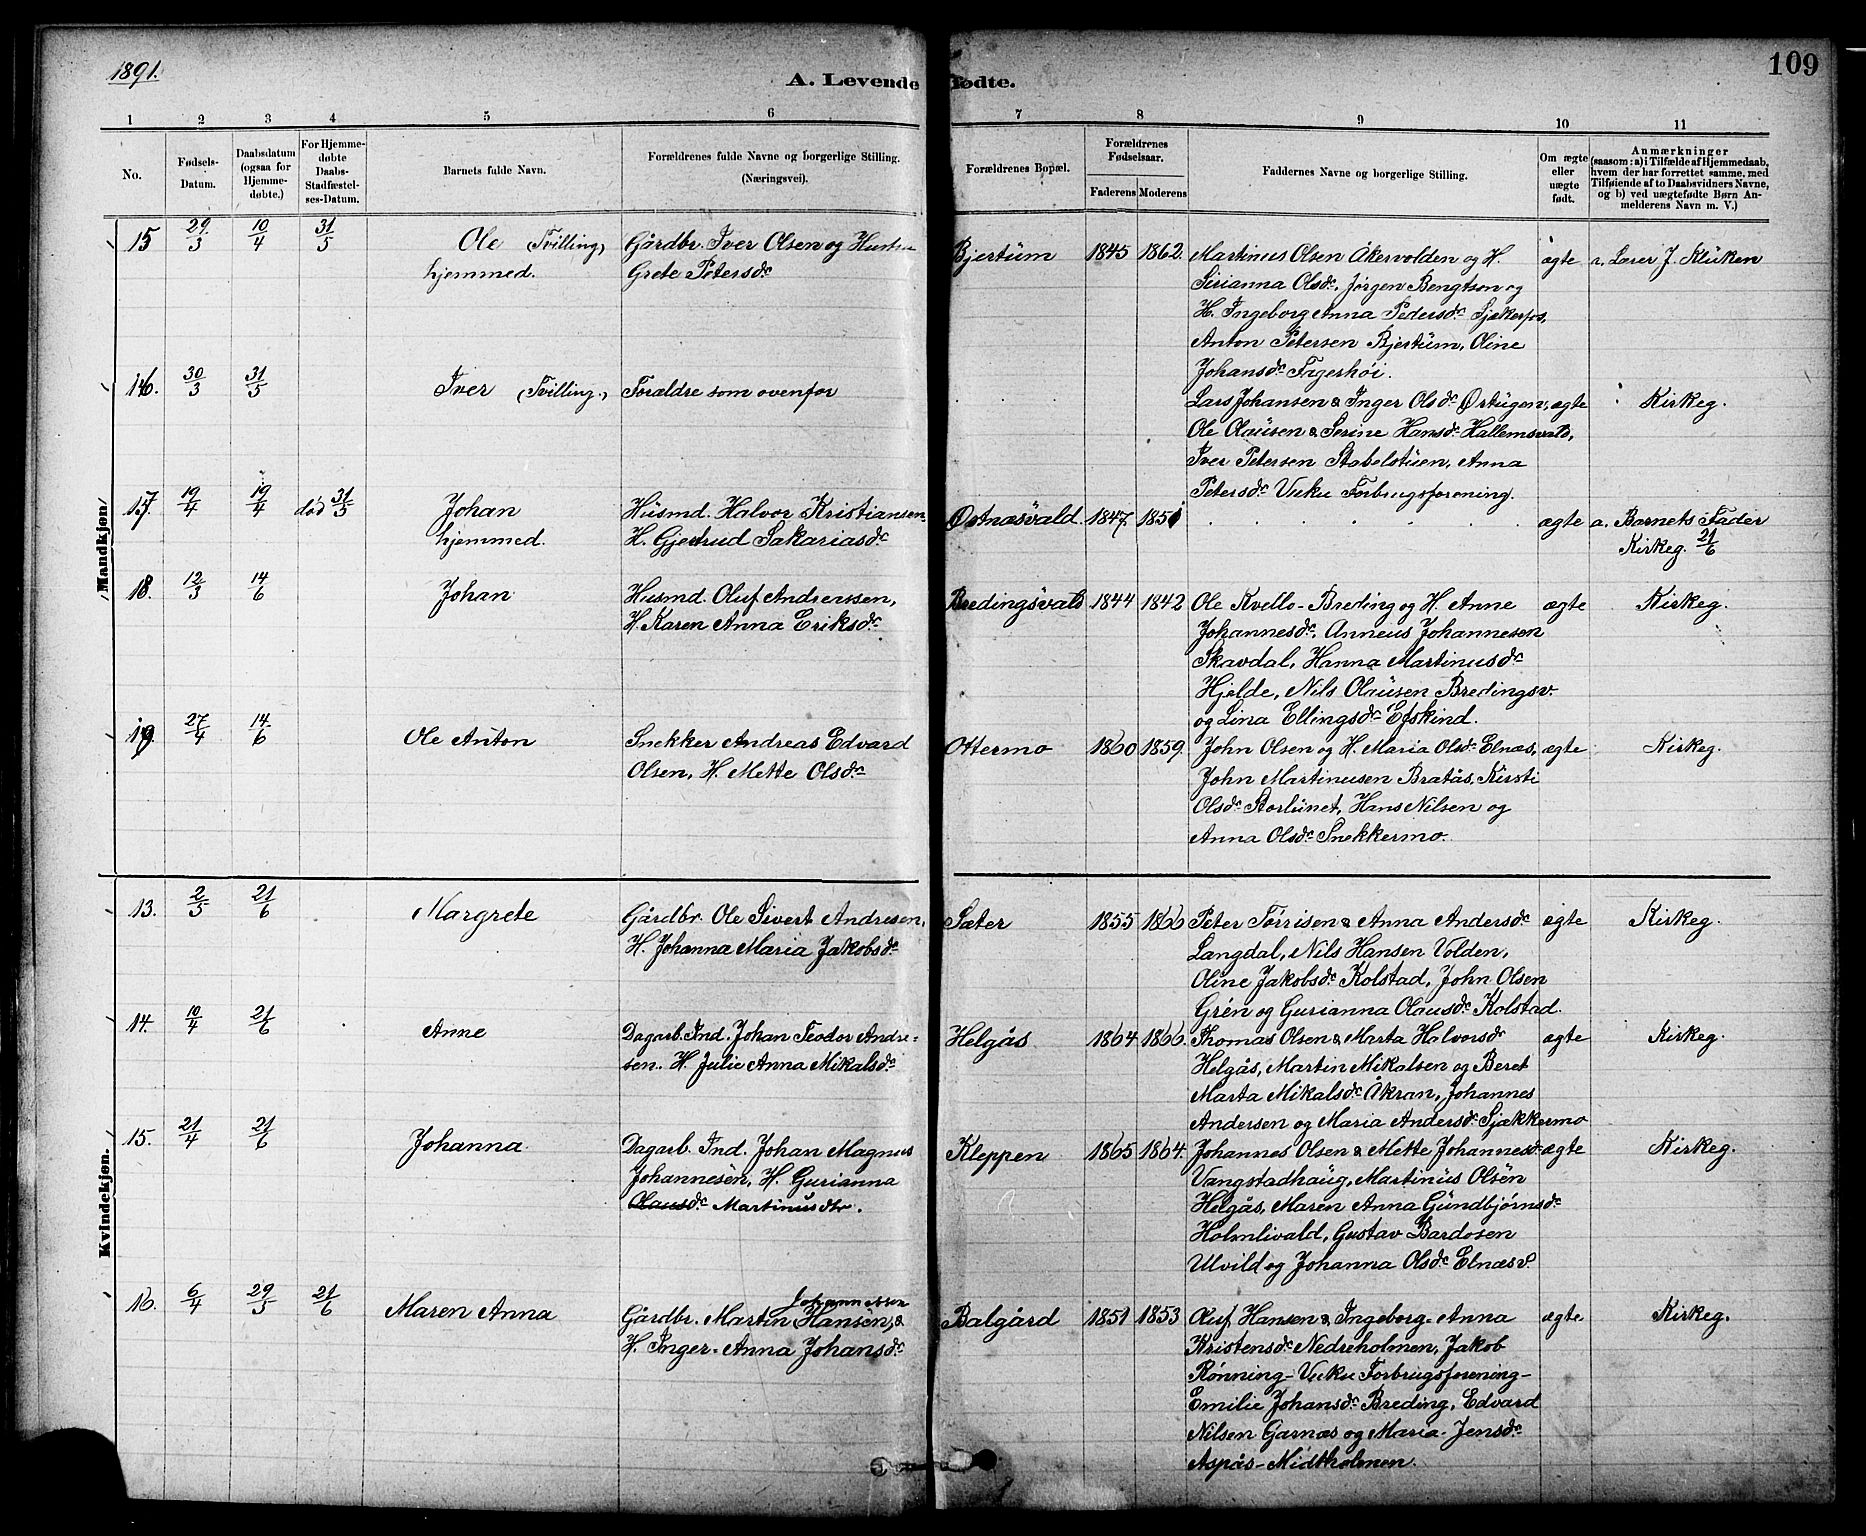 1891.
A. Levende fødte.
109
1 2 3 4 5 6 7 8 9 10 11
No.
Fødsels-
Datum.
Daabsdatum
(ogsaa for
Hjemme-
døbte.)
For Hjemme-
døbte
Daabs-
Stadfæstel-
ses-Datum.
Barnets fulde Navn.
Forældrenes fulde Navne og borgerlige Stilling.
(Næringsvei).
Forældrenes Bopæl.
Forældrenes
Fødselsaar.
Faderens Moderens
Faddernes Navne og borgerlige Stilling.
Om ægte
eller
uægte
født.
Anmærkninger
(saasom: a) i Tilfælde af Hjemmedaab,
hvem der har forrettet samme, med
Tilføiende af to Daabsvidners Navne,
og b) ved uægtefødte Børn An-
melderens Navn m. V.)
(Mandkjøn)
15 29/3 10/4 31/5 Ole (Tvilling) Gårdbr. Iver Olsen og Hustru Bjertum 1845 1862. Martinus Olsen Åkervolden og H. ægte a. Lærer J. Kluken
hjemmed. Grete Petersdr Sirianna Olsdr, Jørgen Bengtson og
H. Ingeborg Anna Pedersdr Sjækerfos,
Anton Petersen Bjertum, Oline
Johansdr Fagerhøi.
16. 30/3 31/5 Iver (Tvilling) Forældre som ovenfor Lars Johansen & Inger Olsdr Ørtugen, ægte Kirkeg.
Ole Olausen & Serine Hansdr Hallemsvald,
Iver Petersen Stabelstuen, Anna
Petersdr Vuku Forbrugsforening.
17. 19/4 19/4 død 31/5 Johan Husmd. Halvor Kristiansen Østnæsvald. 1847. 1851 ægte a. Barnets Fader
hjemmed. H. Gjertrud Sakariasdr Kirkeg. 21/6
18. 12/3 14/6 Johan Husmd. Oluf Andrerssen, Bredingsvald 1844 1842 Ole Kvello-Breding og H. Anne ægte Kirkeg.
H. Karen Anna Eriksdr Johannesdr, Anneus Johannesen
Skavdal, Hanna Martinusdr
Hjelde, Nils Olausen Bredingsv.
og Lina Ellingsdr Efskind.
19 27/4 14/6 Ole Anton Snekker Andreas Edvard Ottermo 1860 1859. John Olsen og H. Maria Olsdr Elnæs, ægte Kirkeg.
Olsen, H. Mette Olsdr John Martinusen Bratås, Kirsti
Olsdr Storlunet, Hans Nilsen og
Anna Olsdr Snekkermo.
Kvindekjøn.
13. 2/5 21/6 Margrete Gårdbr. Ole Sivert Andresen, Sæter 1855 1866 Peter Tørrisen & Anna Andersdr ægte Kirkeg.
H. Johanna Maria Jakobsdr Langdal, Nils Hansen Volden,
Oline Jakobsdr Kolstad, John Olsen
Grén og Gurianna Olausdr Kolstad.
14. 10/4 21/6 Anne Dagarb. Ind. Johan Teodor Andre- Helgås 1864 1866. Thomas Olsen & Marta Halvorsdr ægte Kirkeg.
sen. H. Julie Anna Mikalsdr Helgås, Martin Mikalsen og Beret
Marta Mikalsdr Åkran, Johannes
Andersen og Maria Andersdr Sjækkermo
15. 21/4 21/6 Johanna Dagarb. Ind. Johan Magnus Kleppen 1865 1864. Johannes Olsen & Mette Johannesdr ægte Kirkeg.
Johannesen, H. Gurianna Vangstadhaug, Martinus Olsen
Olausdr Martinusdtr. Helgås, Maren Anna Gundbjørnsdr
Holmlivald, Gustav Bardosen
Ulvild og Johanna Olsdr Elnæsv.
16. 6/4 29/5 21/6 Maren Anna Gårdbr. Martin Johannessen (Hansen) & Balgård 1851 1853 Oluf Hansen & Ingeborg-Anna ægte Kirkeg.
H. Inger-Anna Johansdr Kristensdr Nedreholmen, Jakob
Rønning-Vuku Forbrugsforening-
Emilie Johansdr Breding, Edvard
Nilsen Garnæs og Maria-Jensdr
Aspås-Midtholmen.